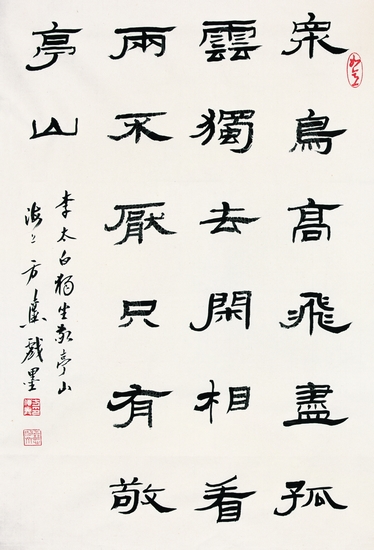 眾鳥高飛盡孤
雲獨去閑相看
兩不厭只有敬
亭山
李太白獨坐敬亭山
海上方戲墨